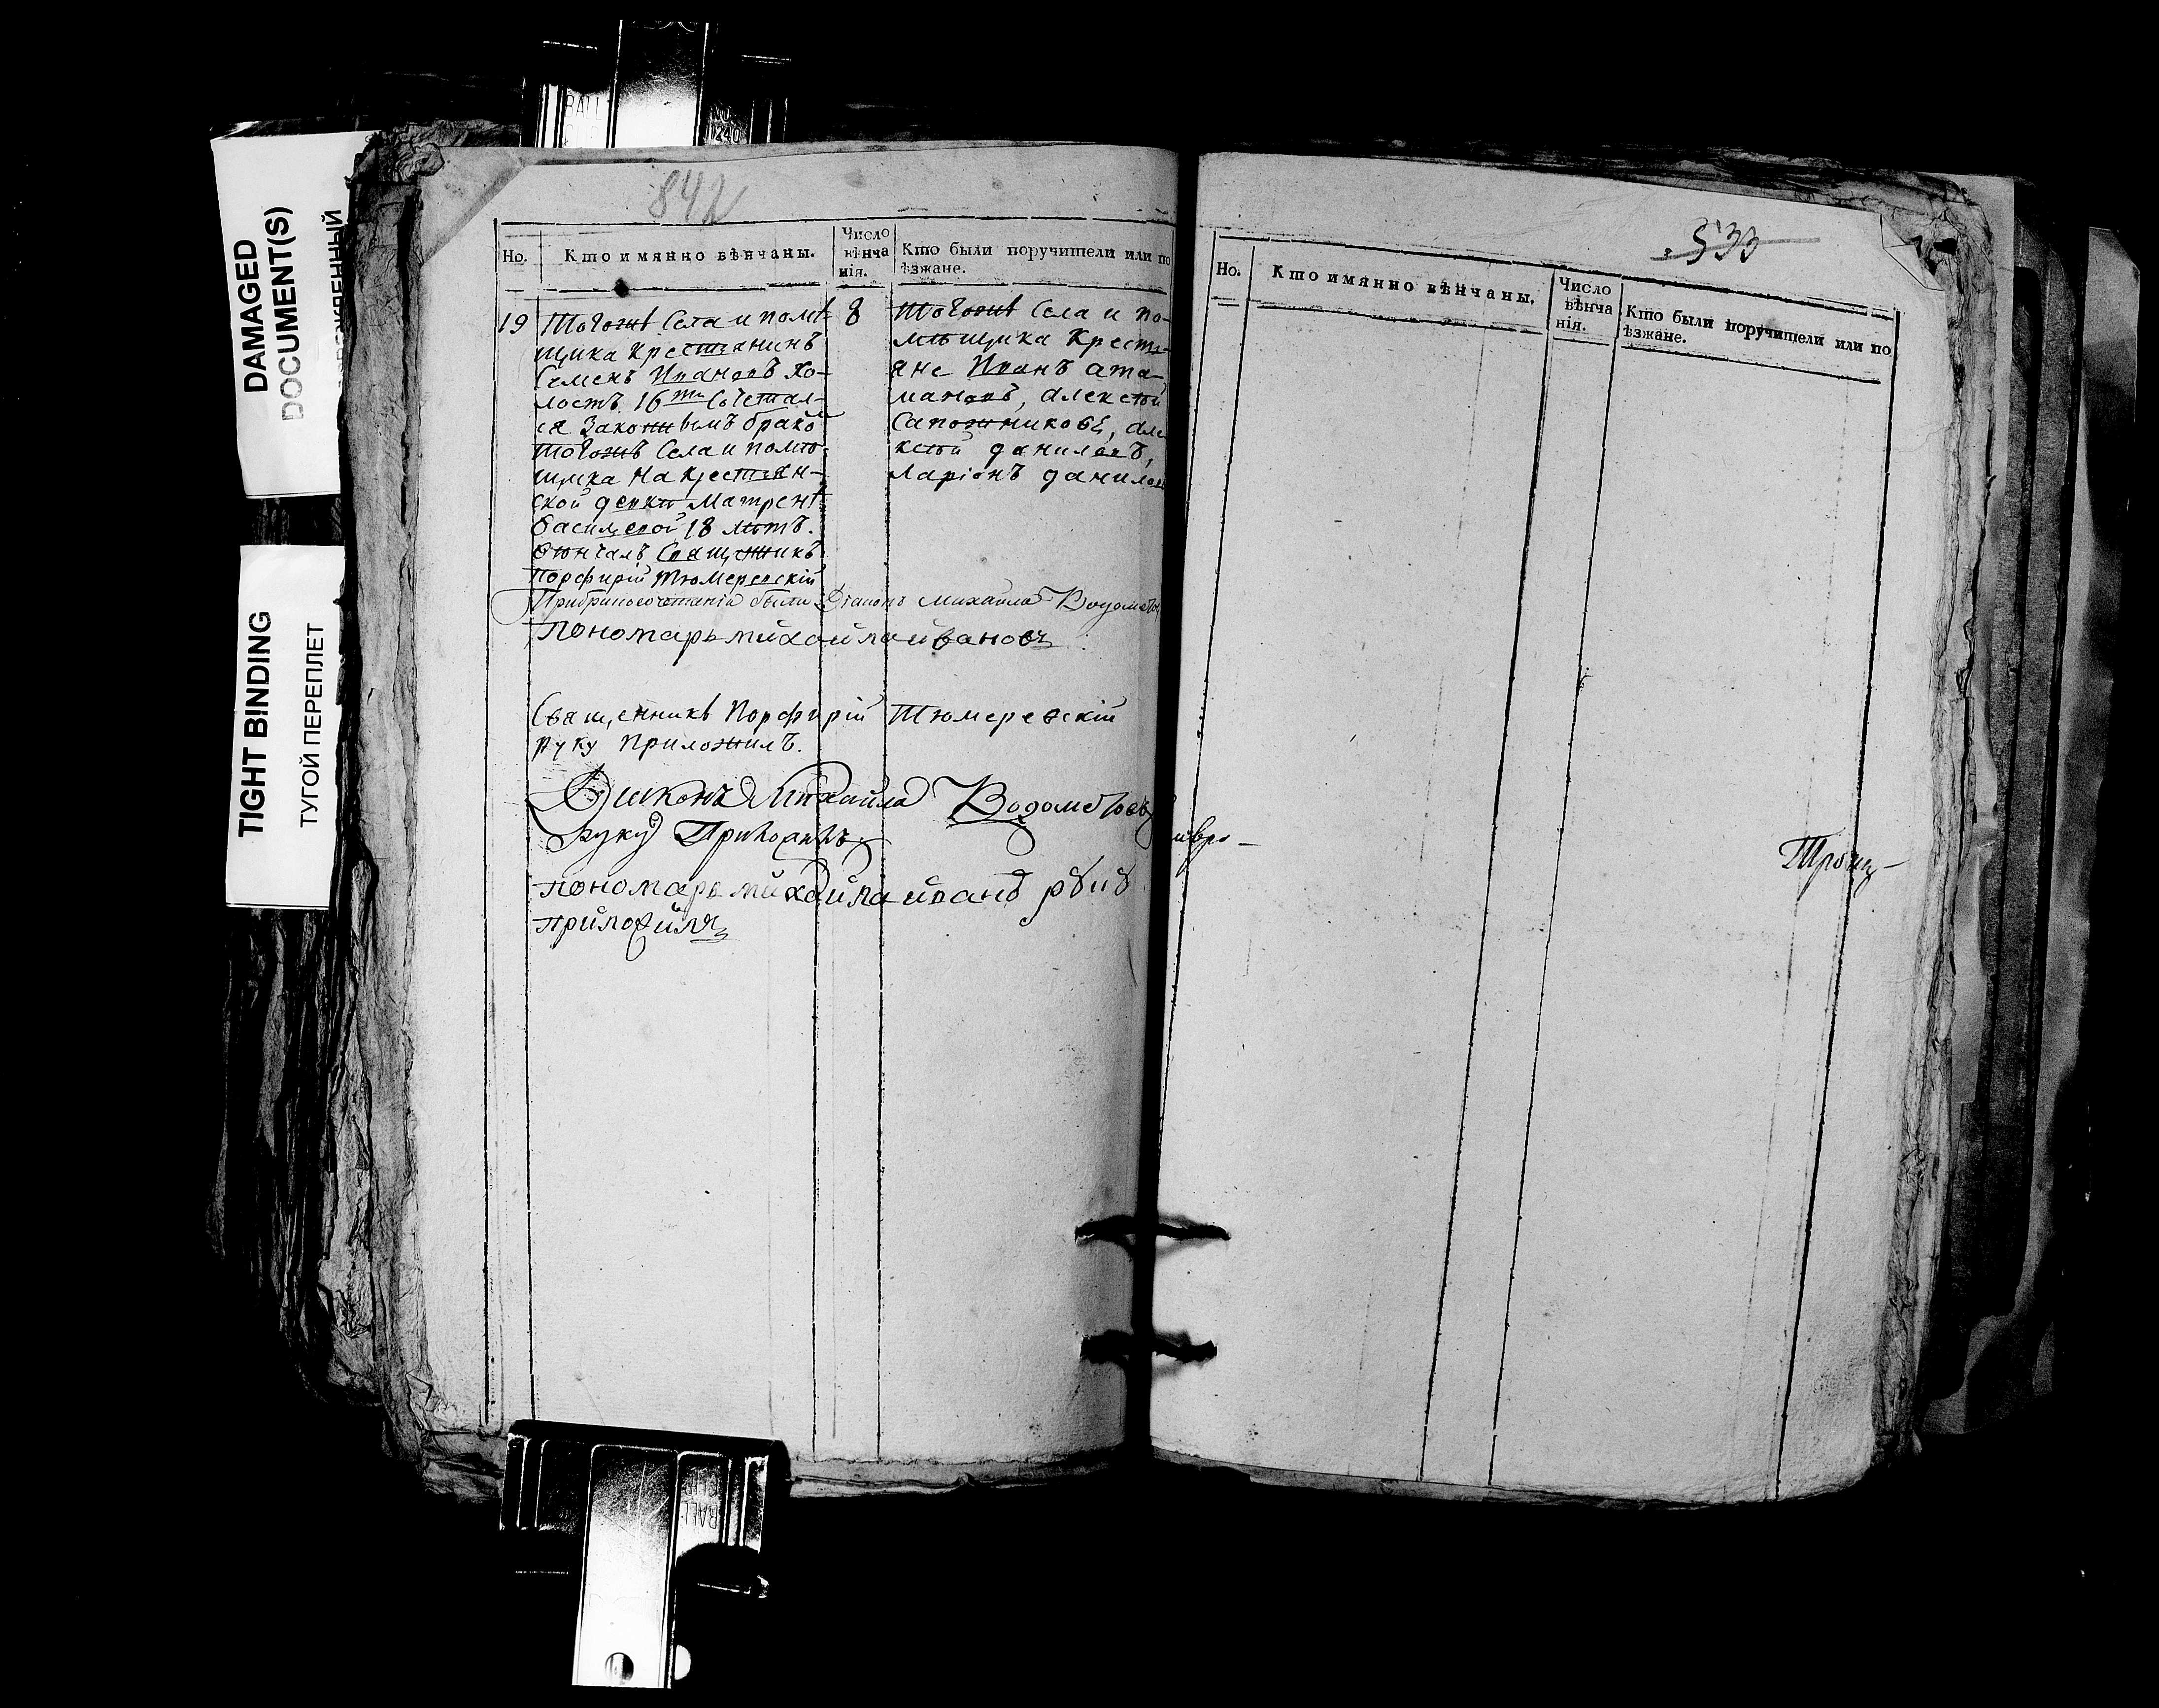 DAMAGED
DOCUMENT(S)
TIGHT BINDING
ТУГОЙ ПЕРЕПЛЕТ
842
Но.
Кто имянно вѣнчаны.
Число
вѣнча
нія.
Кто были поручители или по
ѣзжане.
19
Тогожъ Села и помѣ-
щика крестьянинъ
Семенъ Ивановъ хо-
лостъ 16ти Сочетал-
ся Законнымъ брако
тогожъ Села и помѣ-
щика На крестьян-
ской девки Матренѣ
Васильевой 18 лѣтъ.
Вѣнчалъ Священникъ
Порфирій Тюмеревскій
8
Тогожъ Села и по-
мѣщика Крестья-
яне Иванъ ата-
мановъ, алексѣй
Сапожниковъ, але
ксѣй даниловъ,
ларіонъ данилов
При бракосочетаніи были Діаконъ Михайла
пономарь михайла ивановъ
Священникъ Порфирій Тюмеревскій
руку приложилъ.
Діаконъ Михайла
руку Приложилъ
пономарь михайла иванов руку
приложилъ
533
Но.
Кто имянно вѣнчаны.
Число
вѣнча
нія.
Кто были поручители или по
ѣзжане.
Троиц-